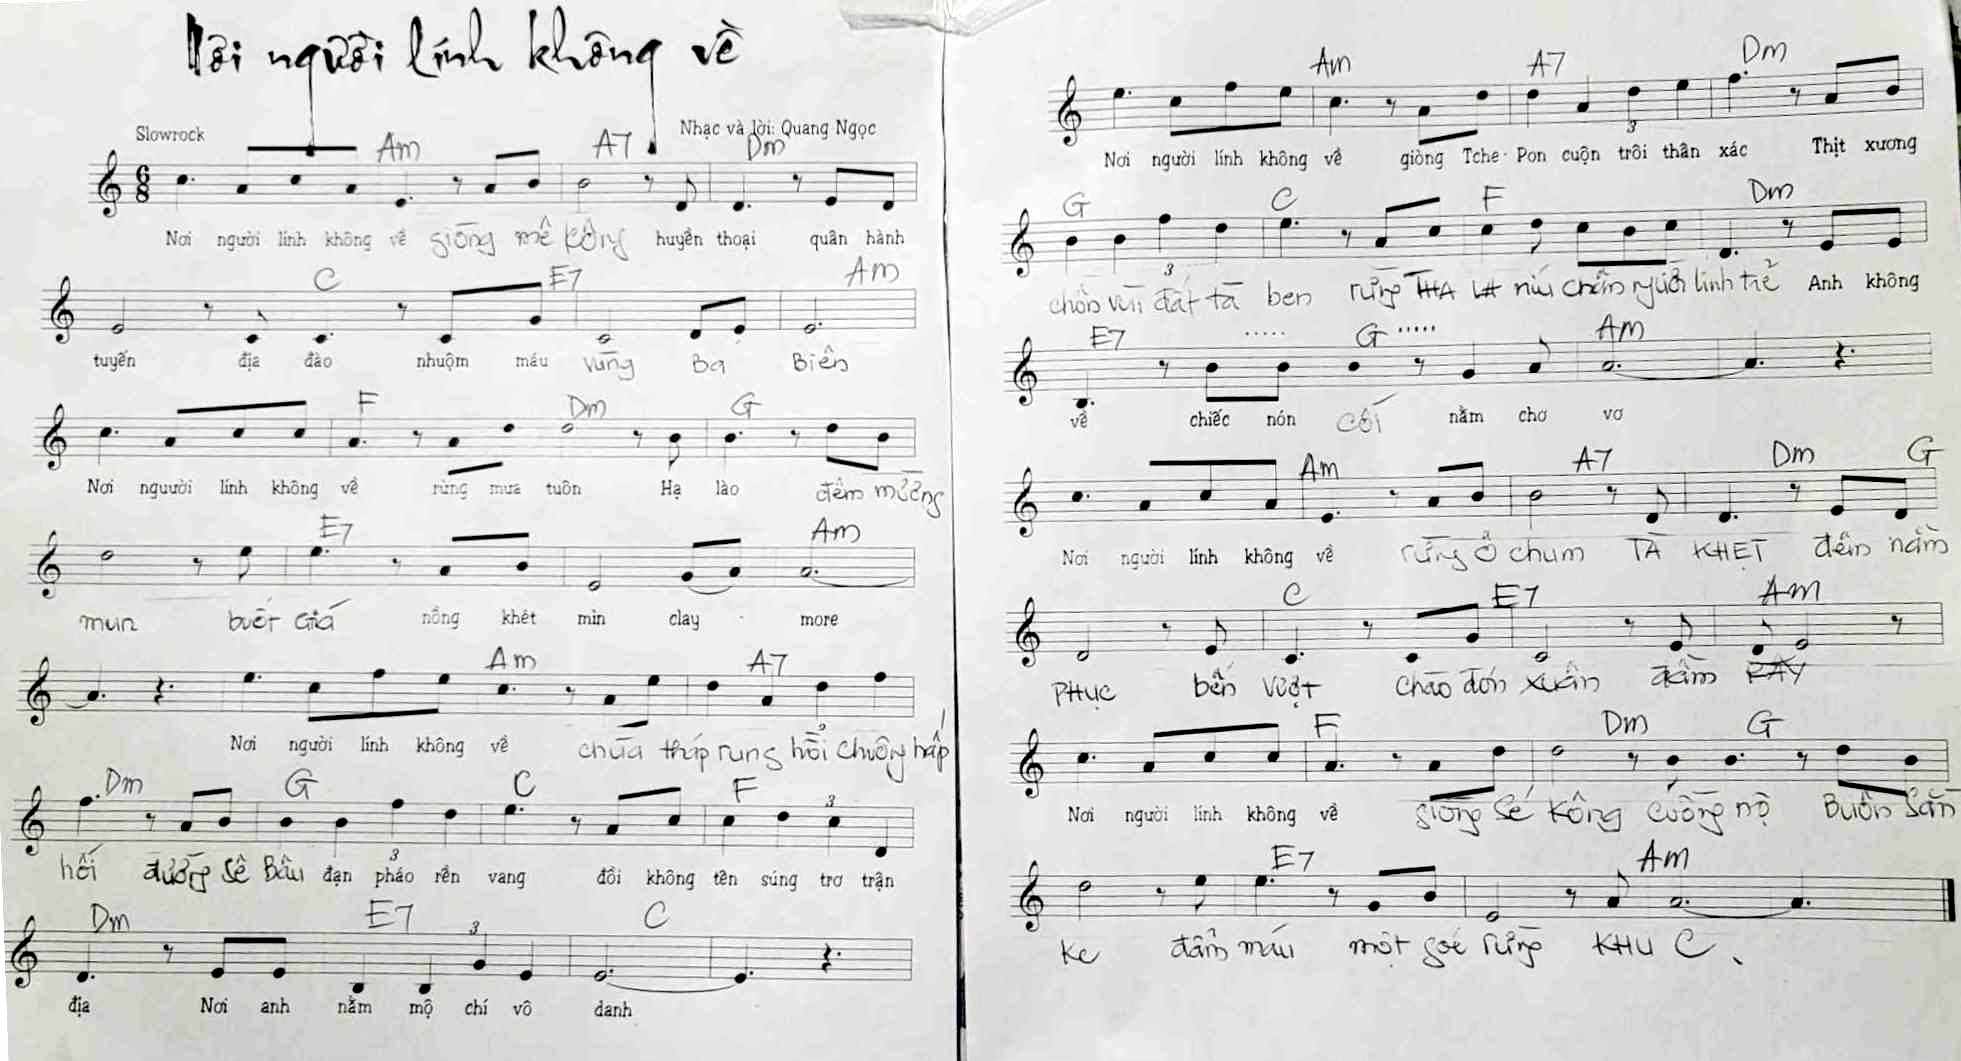 Nơi người lính không về
Slowrock
Nhạc và lời: Quang Ngọc
Am A7 Dm
6 8
Nơi người lính không về giòng mê Kông huyền thoại quân hành
C E7 Am
tuyến địa đào nhuộm máu vùng Ba Biên
F Dm G
Nơi nguười lính không về rừng mưa tuôn Hạ lào đêm mường
E7 Am
mun buốt giá nồng khét mìn clay - more
Am A7
3
Nơi người lính không về chùa tháp rung hồi chuông hấp
Dm G C F
3 3
hối đường Sê Bâu đạn pháo rền vang đồi không tên súng trơ trận
Dm E7 C
3
địa Nơi anh nằm mộ chí vô danh
Am A7 Dm
3
Nơi người lính không về giòng Tche-Pon cuộn trôi thân xác Thịt xương
G C F Dm
3
chôn vùi đất tà ben rừng THA LA níu chân người lính trẻ Anh không
E7 ..... G ..... Am
về chiếc nón cối nằm chơ vơ
Am A7 Dm G
Nơi người lính không về rừng Ô chum TÀ KHẸT đêm nằm
C E7 Am
PHỤC bến vượt chào đón xuân đầm
F Dm G
Nơi người lính không về giòng Sé Kông cuồng nộ Buồn Sắn
E7 Am
Ke đẫm máu một goé rừng KHU C.